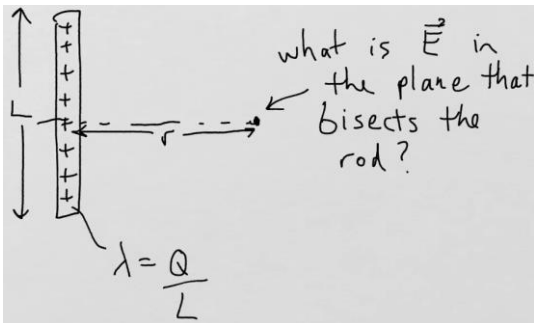 what is E⃗ in
the plane that
bisects the
rod?
L
r
+
+
+
+
+
+
+
+
λ = Q
L